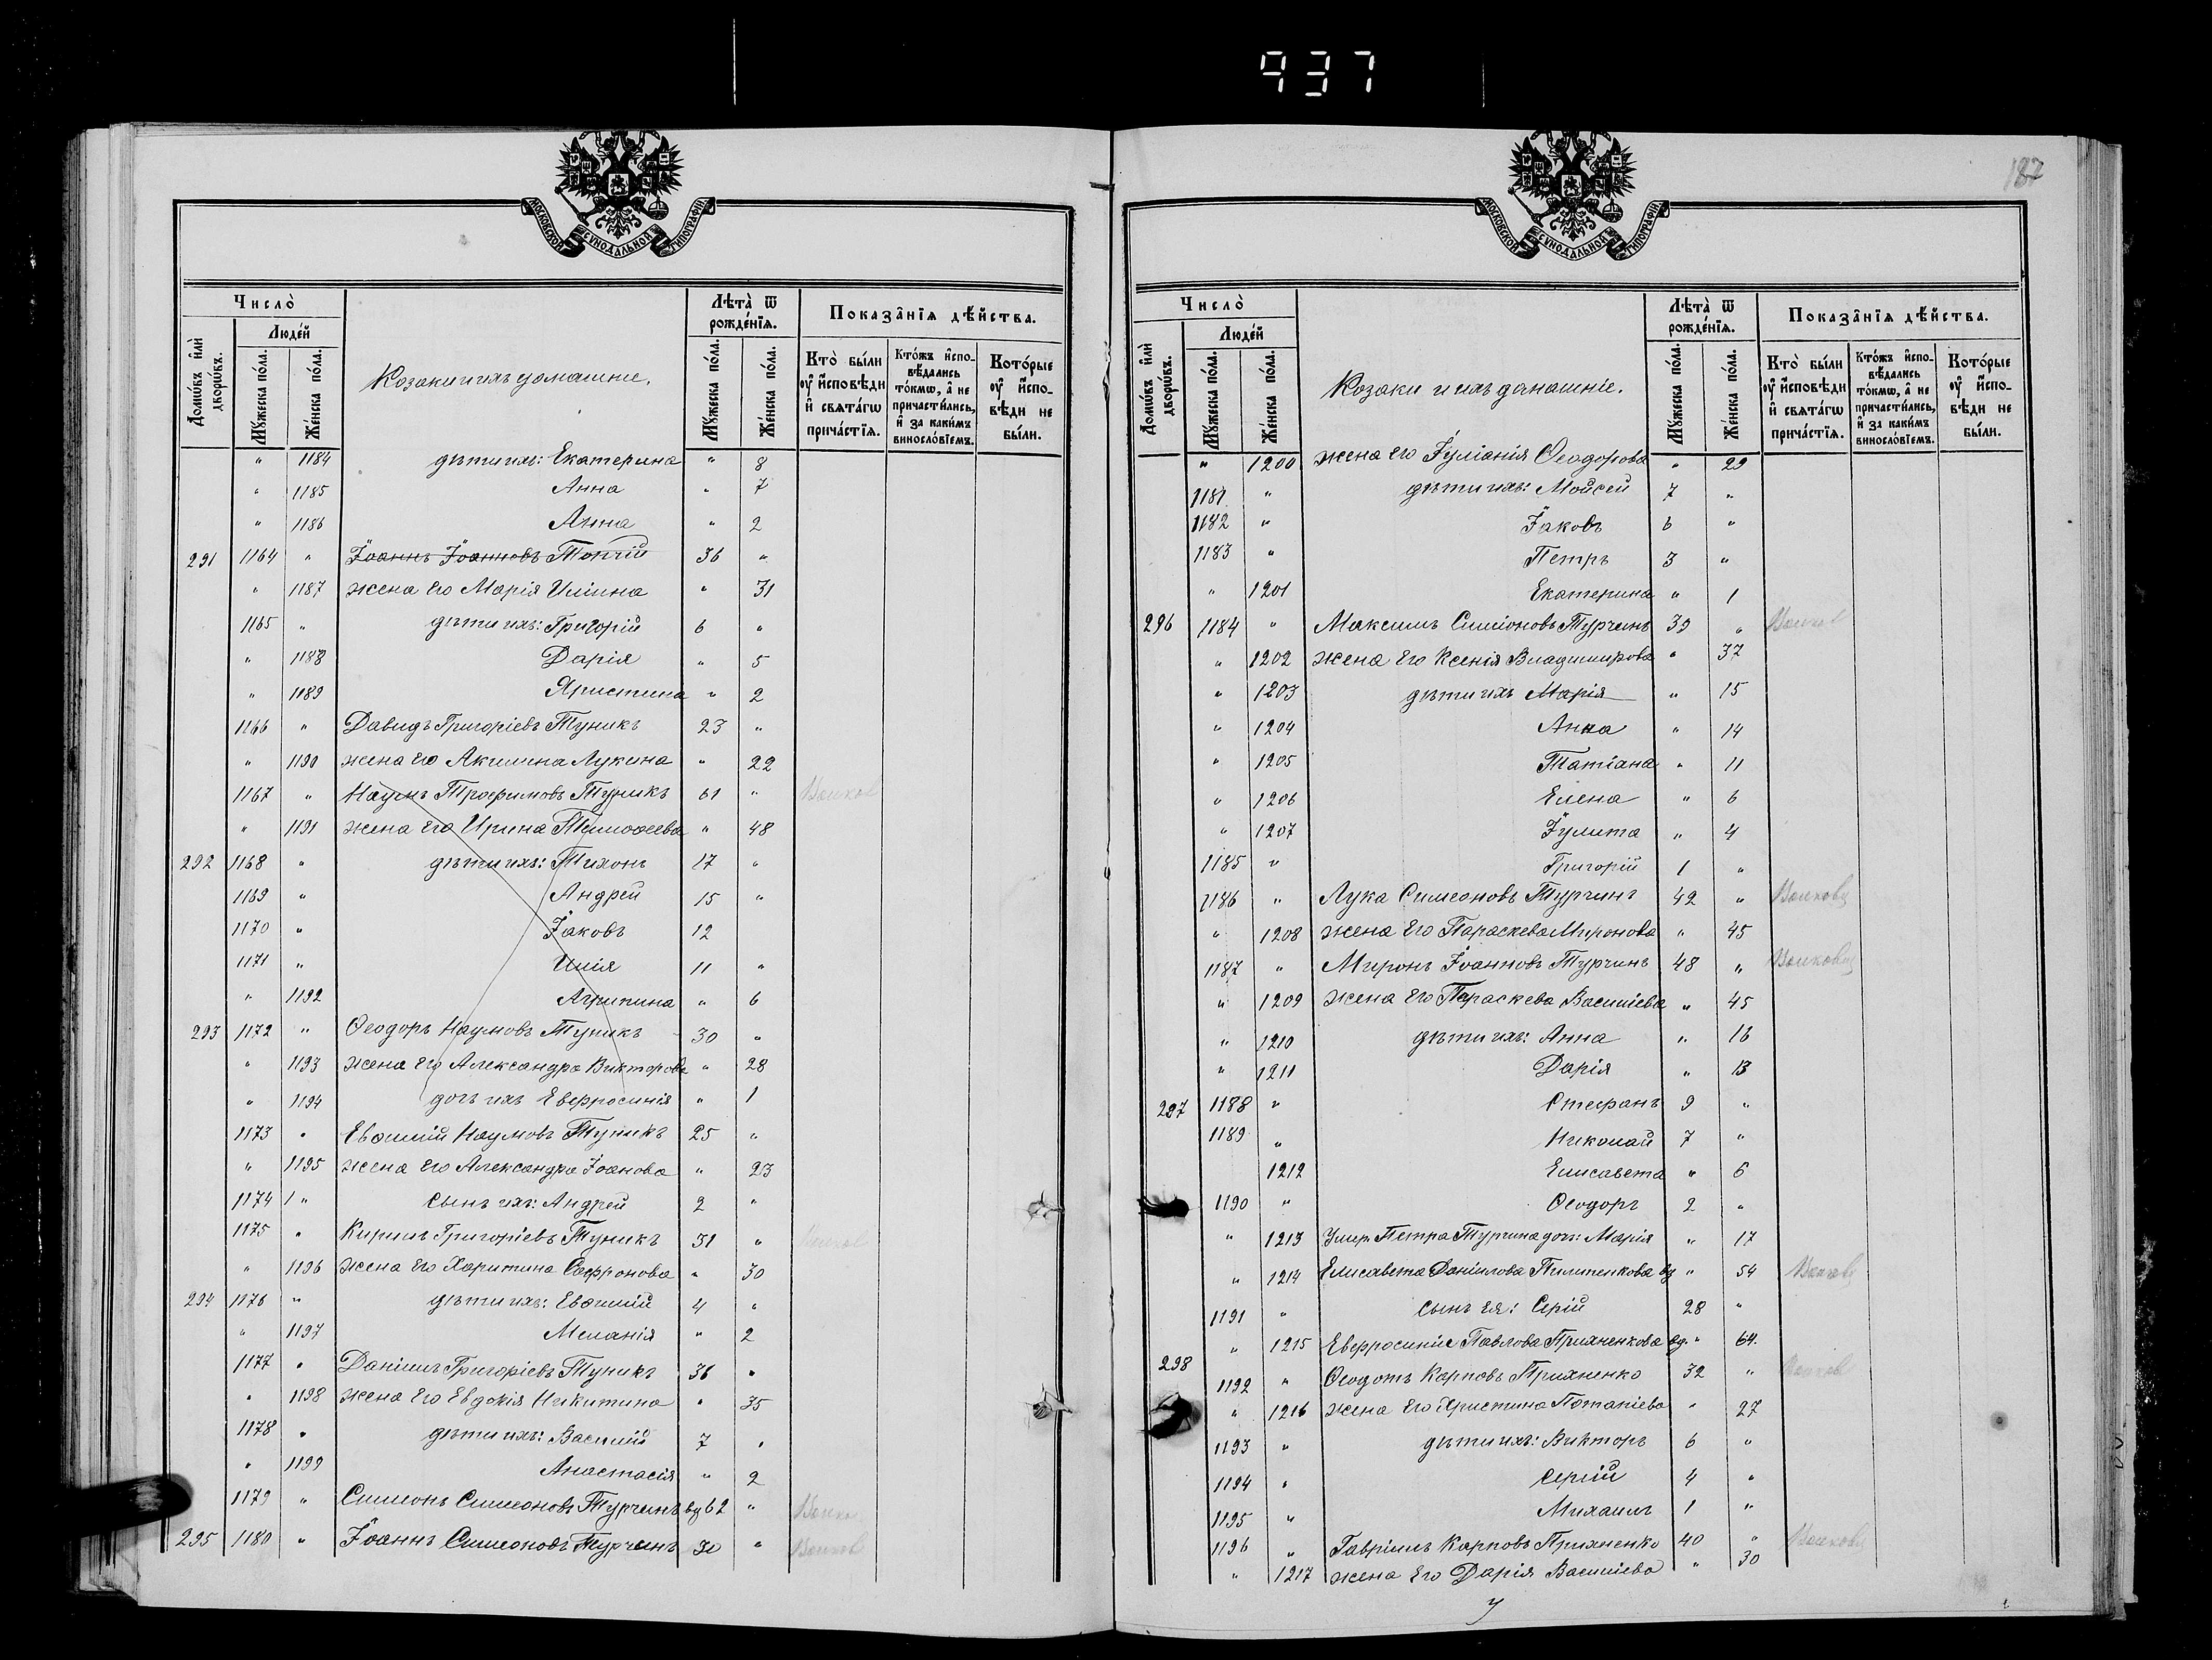 937
МОСКОВСКОЙ СѴНОДАЛЬНОЙ ТИПОГРАФІИ
Число̀
Лѣта̀ ѿ рожде́нїѧ.
Показа̂нїѧ дѣ́йства.
Домѡ́въ и҆лѝ дворѡ́въ.
Люде́й
Мꙋ́жеска по́ла.
Же́нска по́ла.
Козаки и ихъ домашніе.
Мꙋ́жеска по́ла.
Же́нска по́ла.
Кто̀ бы́ли ᲂу҆ и҆сповѣди и҆ свѧта́гѡ прича́стїѧ.
Кто́жъ и҆спо- вѣдались то́кмѡ, а҆ не причасти́лись, и҆ за каки́мъ виносло́вїемъ.
Кото́рые ᲂу҆ и҆спо- вѣди не бы́ли.
" 1184 дѣти ихъ: Екатерина " 8
" 1185 Анна " 7
" 1186 Анна " 2
291 1164 " Іоаннъ Іоанновъ Топчій 36 "
" 1187 жена его Марія Иліина " 31
1165 " дѣти ихъ: Григорій 6 "
" 1188 Дарія " 5
" 1189 Христина " 2
1166 " Давидъ Григоріевъ Туникъ 23 "
" 1190 жена его Акилина Лукина " 22
1167 " Наумъ Трофимовъ Туникъ 61 "
" 1191 жена его Ирина Тимоѳеева " 48
292 1168 " дѣти ихъ: Тихонъ 17 "
1169 " Андрей 15 "
1170 " Іаковъ 12
1171 " Илія 11 "
" 1192 Агрипина " 6
293 1172 " Ѳеодоръ Наумовъ Туникъ 30 "
" 1193 жена его Александра Викторова " 28
" 1194 дочь ихъ Евфросинія " 1
1173 " Евѳимій Наумовъ Туникъ 25 "
" 1195 жена его Александра Іоанова " 23
1174 " сынъ ихъ: Андрей 2 "
1175 " Кирилъ Григоріевъ Туникъ 31 "
" 1196 жена его Харитина Сафронова " 30
294 1176 " дѣти ихъ: Евѳимій 4 "
" 1197 Меланія " 2
1177 " Даніилъ Григоріевъ Туникъ 36 "
" 1198 жена его Евдокія Никитина " 35
1178 " дѣти ихъ: Василій 7 "
" 1199 Анастасія " 2
1179 " Симеонъ Симеоновъ Турчинъ вд 62 "
295 1180 " Іоаннъ Симеоновъ Турчинъ 30 "
187
МОСКОВСКОЙ СѴНОДАЛЬНОЙ ТИПОГРАФІИ
Число̀
Лѣта̀ ѿ рожде́нїѧ.
Показа̂нїѧ дѣ́йства.
Домѡ́въ и҆лѝ дворѡ́въ.
Люде́й
Мꙋ́жеска по́ла.
Же́нска по́ла.
Козаки и ихъ домашніе.
Мꙋ́жеска по́ла.
Же́нска по́ла.
Кто̀ бы́ли ᲂу҆ и҆сповѣди и҆ свѧта́гѡ прича́стїѧ.
Кто́жъ и҆спо- вѣдались то́кмѡ, а҆ не причасти́лись, и҆ за каки́мъ виносло́вїемъ.
Кото́рые ᲂу҆ и҆спо- вѣди не бы́ли.
" 1200 жена его Іуліанія Ѳеодорова " 29
1181 " дѣти ихъ: Мойсей 7 "
1182 " Іаковъ 6 "
1183 " Петръ 3 "
" 1201 Екатерина " 1
296 1184 " Максимъ Симіоновъ Турчинъ 39 "
" 1202 жена его Ксенія Владимирова " 37
" 1203 дѣти ихъ Марія " 15
" 1204 Анна " 14
" 1205 Татіана " 11
" 1206 Елена " 6
" 1207 Іулита " 4
1185 " Григорій 1 "
1186 " Лука Симеоновъ Турчинъ 42 "
" 1208 жена его Параскева Миронова " 45
1187 " Миронъ Іоанновъ Турчинъ 48 "
" 1209 жена его Параскева Василіева " 45
" 1210 дѣти ихъ: Анна " 16
" 1211 Дарія " 13
297 1188 " Стефанъ 9 "
1189 " Николай 7 "
1212 Елисавета " 6
1190 " Ѳеодоръ 2 "
" 1213 Умер. Петра Турчина дочь: Марія " 17
" 1214 Елисавета Даніилова Пилипенкова вд " 54
1191 " сынъ ея: Серій 28 "
" 1215 Евфросинія Павлова Прихненкова вд. " 64.
298 1192 " Ѳеодотъ Карповъ Прихненко 32 "
" 1216 жена его Христина Потапіева " 27
1193 " дѣти ихъ: Викторъ 6 "
1194 " Сергій 4 "
1195 " Михаилъ 1 "
1196 " Гавріилъ Карповъ Прихненко 40 "
" 1217 жена его Дарія Василіева " 30